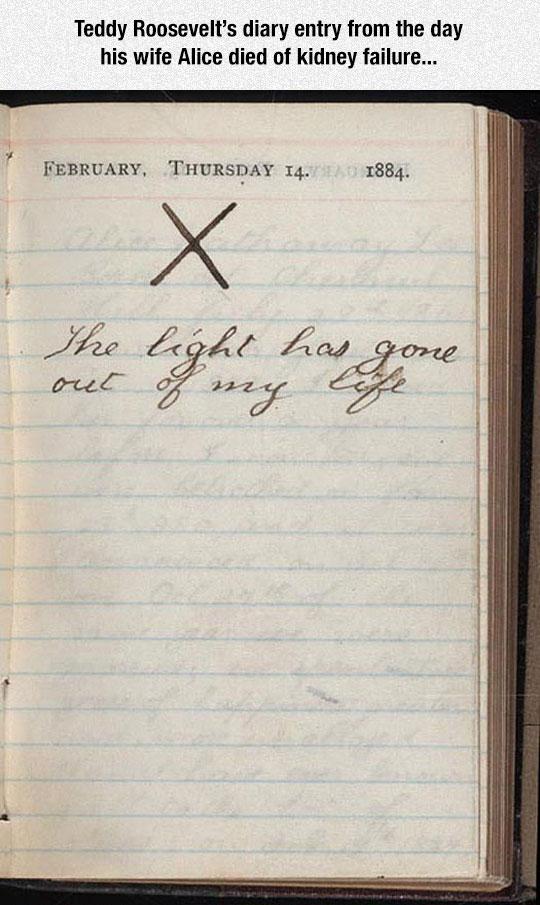 Teddy Roosevelt's diary entry from the day
his wife Alice died of kidney failure...
FEBRUARY, THURSDAY 14. 1884.
X
The light has gone
out of my life